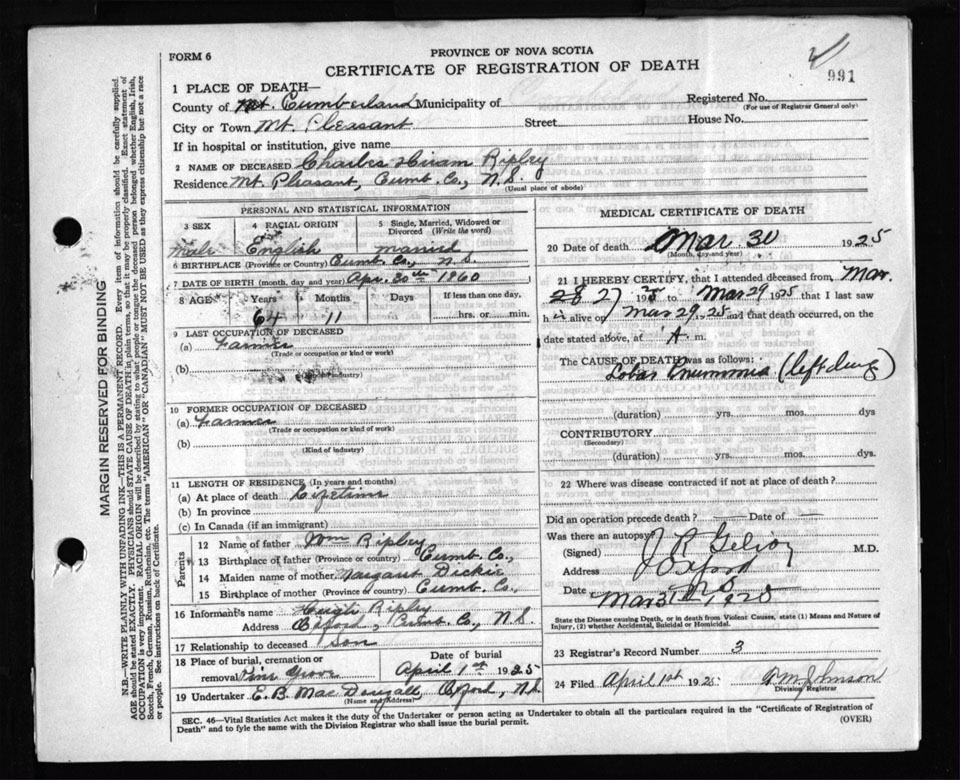 991
FORM 6
PROVINCE OF NOVA SCOTIA
CERTIFICATE OF REGISTRATION OF DEATH
1 PLACE OF DEATH—
County of Cumberland Municipality of
Registered No.
(For use of Registrar General only)
City or Town Mt. Pleasant Street House No.
If in hospital or institution, give name
2 NAME OF DECEASED Charles Hiram Ripley
Residence Mt. Pleasant, Cumb. Co., N.S.
(Usual place of abode)
PERSONAL AND STATISTICAL INFORMATION
3 SEX
4 RACIAL ORIGIN
5 Single, Married, Widowed or Divorced (Write the word)
Male English Married
6 BIRTHPLACE (Province or Country) Cumb. Co., N.S.
7 DATE OF BIRTH (month, day and year) Apr. 30th 1860
8 AGE Years Months Days If less than one day,
64 11 hrs. or min.
9 LAST OCCUPATION OF DECEASED
(a) Farmer
(Trade or occupation or kind of work)
(b)
10 FORMER OCCUPATION OF DECEASED
(a) Farmer
(Trade or occupation or kind of work)
(b)
(Kind of industry)
11 LENGTH OF RESIDENCE (In years and months)
(a) At place of death Lifetime
(b) In province
(c) In Canada (if an immigrant)
Parents
12 Name of father Wm Ripley
13 Birthplace of father (Province or country) Cumb. Co.,
14 Maiden name of mother Margaret Dickie
15 Birthplace of mother (Province or country) Cumb. Co.,
16 Informant's name Hugh Ripley
Address Oxford, Cumb. Co., N.S.
17 Relationship to deceased Son
18 Place of burial, cremation or
removal Pine Grove April 1st 1925
19 Undertaker E. B. MacDougall, Oxford, N.S.
(Name and Address)
MEDICAL CERTIFICATE OF DEATH
20 Date of death Mar. 30 1925
(Month, day and year)
21 I HEREBY CERTIFY, that I attended deceased from Mar.
27 192 to Mar 29 1925 that I last saw
h alive on Mar 29, 25 and that death occurred, on the
date stated above, at A. m.
The CAUSE OF DEATH was as follows:
Lobar Pneumonia (left lung)
(duration) yrs. mos. dys
CONTRIBUTORY
(Secondary)
(duration) yrs. mos. dys.
22 Where was disease contracted if not at place of death?
Did an operation precede death? — Date of —
Was there an autopsy?
(Signed) M.D.
Address Oxford
N S
Date Mar 31st 1925
State the Disease causing Death, or in death from Violent Causes, state (1) Means and Nature of Injury, (2) whether Accidental, Suicidal or Homicidal.
23 Registrar's Record Number 3
24 Filed April 1st 1925 Johnson
Division Registrar
SEC. 46—Vital Statistics Act makes it the duty of the Undertaker or person acting as Undertaker to obtain all the particulars required in the "Certificate of Registration of
Death" and to fyle the same with the Division Registrar who shall issue the burial permit.
(OVER)
MARGIN RESERVED FOR BINDING
N.B.—WRITE PLAINLY WITH UNFADING INK—THIS IS A PERMANENT RECORD. Every item of information should be carefully supplied.
AGE should be stated EXACTLY. PHYSICIANS should STATE CAUSE OF DEATH in plain terms, so that it may be properly classified. Exact statement of
OCCUPATION is very important. RACIAL ORIGIN will be described by stating to what people or tongue the deceased person belonged whether English, Irish,
Scotch, French, German, Russian, Ruthenian, etc. The terms "AMERICAN" OR "CANADIAN" MUST NOT BE USED as they express citizenship but not a race
or people. See instructions on back of Certificate.